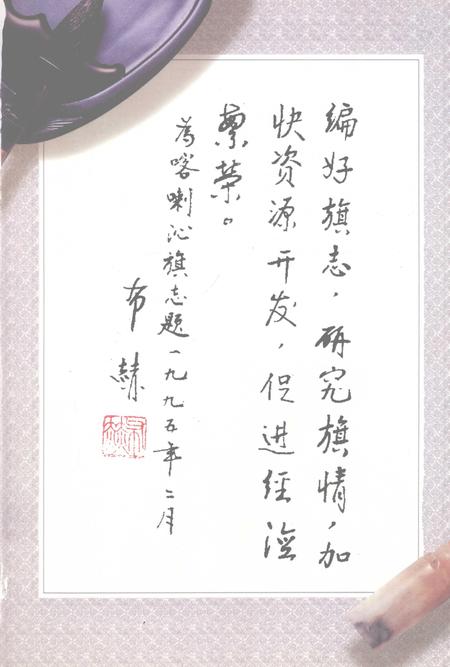 编好旗志，研究旗情，加
快资源开发，促进经济
繁荣。
为喀喇沁旗志题 一九九五年二月
布赫